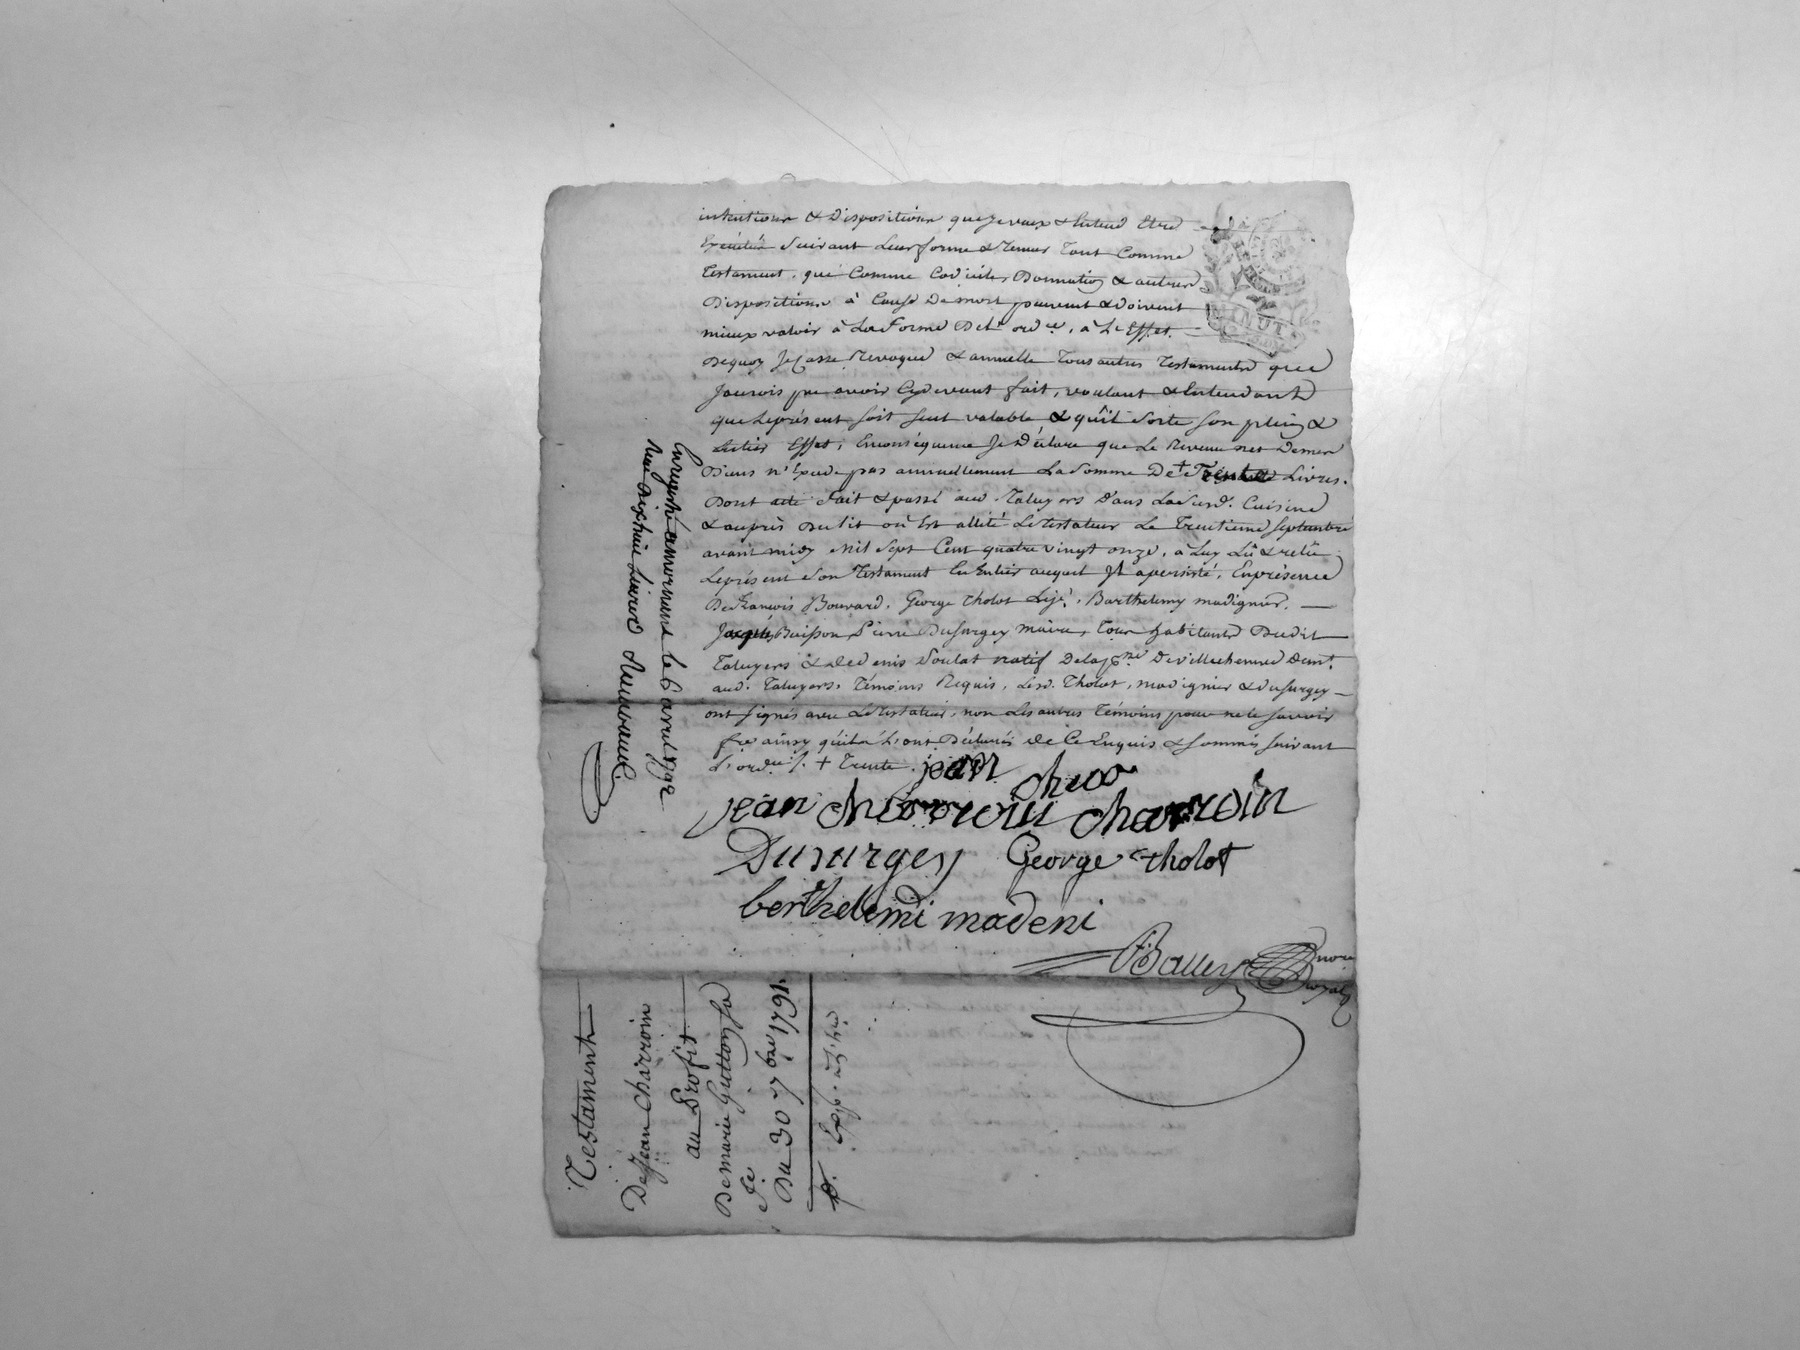 intentions & Dispositions que je veux & Entend Etre
Executés Suivant Leur forme & Teneur Tant Comme
Testament, que Comme Codicile, Donnation & autres
Dispositions à Cause De mort peuvent & doivent
mieux valoir à La Forme De L'ord.ce, à L'Effet
Dequoy Je Casse Revoque & annulle Tous autres Testaments que
Jaurois pu avoir Cydevant fait, voulant & Entendant
que Leprésent soit seul valable & qu'il Sorte son plein &
Entier Effet, Enconséquence Je Déclare que Le Revenu net De mes
Biens n'Exede pas annuellement La Somme De + Trente Livres.
Dont acte Fait & passé aud. Taluyers Dans Lasusd. Cuisine
& auprès Du Lit où Est allité Le testateur Le Trentieme Septembre
avant midy Mil Sept Cent quatre vingt onze, à Luy Lû & relû
Leprésent Son Testament En Entier auquel Il apersisté, Enprésence
De François Bouvard, George tholot, Barthelemy madignier,
Jacques Buisson, Pierre Dusurgey maire, Tous habitants Dudit
Taluyers & de denis Soulat natif De Villechenne Dem.t
aud. Taluyers, Témoins Requis, Lesd. Tholot, madignier & dusurgey
ont signés avec Le testateur, non Les autres Témoins pour ne le savoir
fre ainsy qu'ils L'ont Déclarés De Ce Enquis & sommés suivant
L'ord.ce /. + Trente.
jean
jean charroin charroin
Dusurgey George tholot
berthelemi madeni
Balley no.re
Royal
Enregistré amornant le 6 avril 1792
Reçu Dixhuit Livres
Testament
De Jean Charroin
au Profit
De marie Gutton sa
fe
Du 30 7bre 1791.